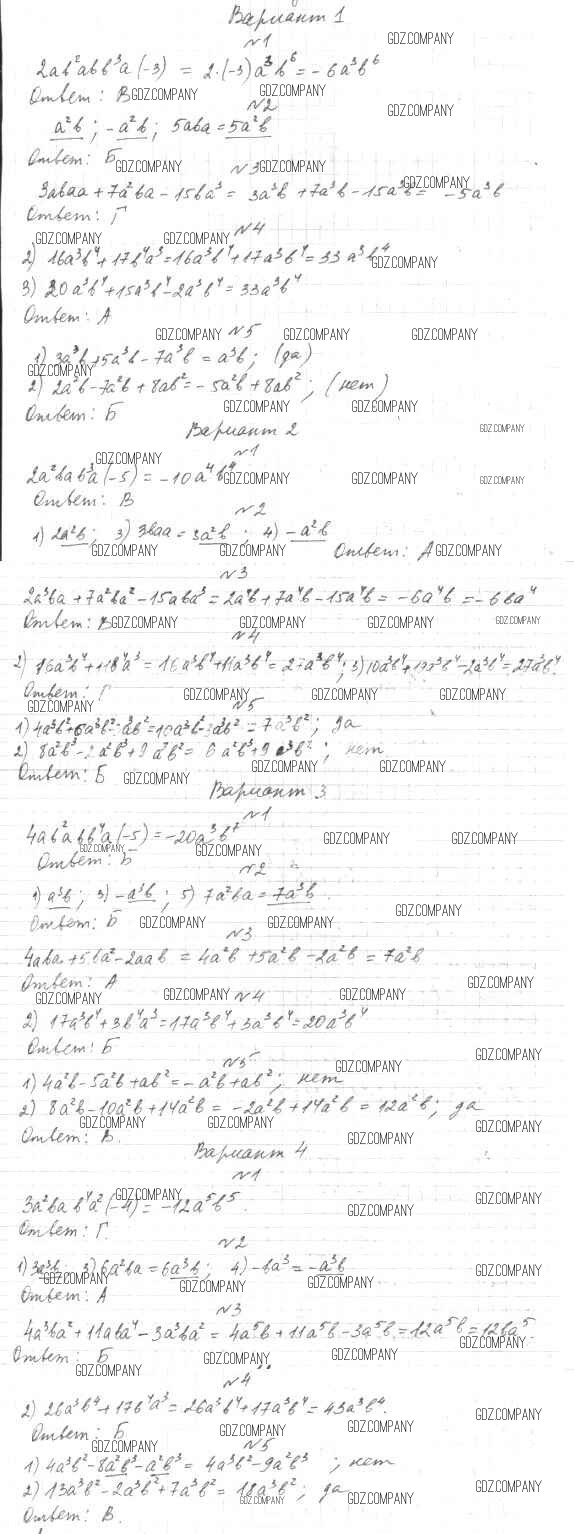 Вариант 1
№1
2ab²abb³a(-3) = 2·(-3)a³b⁶ = -6a³b⁶
Ответ: В
№2
a²b; -a²b; 5aba = 5a²b
Ответ: Б
№3
3abaa + 7a²ba - 15ba³ = 3a³b + 7a³b - 15a³b = -5a³b
Ответ: Г
№4
2) 16a³b⁴ + 17b⁴a³ = 16a³b⁴ + 17a³b⁴ = 33a³b⁴
3) 20a³b⁴ + 15a³b⁴ - 2a³b⁴ = 33a³b⁴
Ответ: А
№5
1) 3a³b + 5a³b - 7a³b = a³b; (да)
2) 2a²b - 7a²b + 8ab² = -5a²b + 8ab²; (нет)
Ответ: Б
Вариант 2
№1
2a²bab³a(-5) = -10a⁴b⁴
Ответ: В
№2
1) 2a²b; 3) 3baa = 3a²b; 4) -a²b
Ответ: А
№3
2a³ba + 7a²ba² - 15aba³ = 2a⁴b + 7a⁴b - 15a⁴b = -6a⁴b = -6ba⁴
Ответ: В
№4
2) 16a³b⁴ + 11b⁴a³ = 16a³b⁴ + 11a³b⁴ = 27a³b⁴; 3) 10a³b⁴ + 19a³b⁴ - 2a³b⁴ = 27a³b⁴.
Ответ: Г
№5
1) 4a³b² + 6a³b² - 3a³b² = 10a³b² - 3a³b² = 7a³b²; да
2) 8a²b³ - 2a²b³ + 9a³b² = 6a²b³ + 9a³b²; нет
Ответ: Б
Вариант 3
№1
4ab²abb⁴a(-5) = -20a³b⁷
Ответ: Б
№2
1) a³b; 3) -a³b; 5) 7a²ba = 7a³b
Ответ: Б
№3
4aba + 5ba² - 2aab = 4a²b + 5a²b - 2a²b = 7a²b
Ответ: А
№4
2) 17a³b⁴ + 3b⁴a³ = 17a³b⁴ + 3a³b⁴ = 20a³b⁴
Ответ: Б
№5
1) 4a²b - 5a²b + ab² = -a²b + ab²; нет
2) 8a²b - 10a²b + 14a²b = -2a²b + 14a²b = 12a²b; да
Ответ: В.
Вариант 4
№1
3a²bab⁴a²(-4) = -12a⁵b⁵.
Ответ: Г.
№2
1) 3a³b; 3) 6a²ba = 6a³b; 4) -ba³ = -a³b
Ответ: А
№3
4a³ba² + 11aba⁴ - 3a³ba² = 4a⁵b + 11a⁵b - 3a⁵b = 12a⁵b = 12ba⁵.
Ответ: Б
№4
2) 26a³b⁴ + 17b⁴a³ = 26a³b⁴ + 17a³b⁴ = 43a³b⁴.
Ответ: Б
№5
1) 4a³b² - 8a²b³ - a²b³ = 4a³b² - 9a²b³; нет
2) 13a³b² - 2a³b² + 7a³b² = 18a³b²; да
Ответ: В.
GDZ.COMPANY